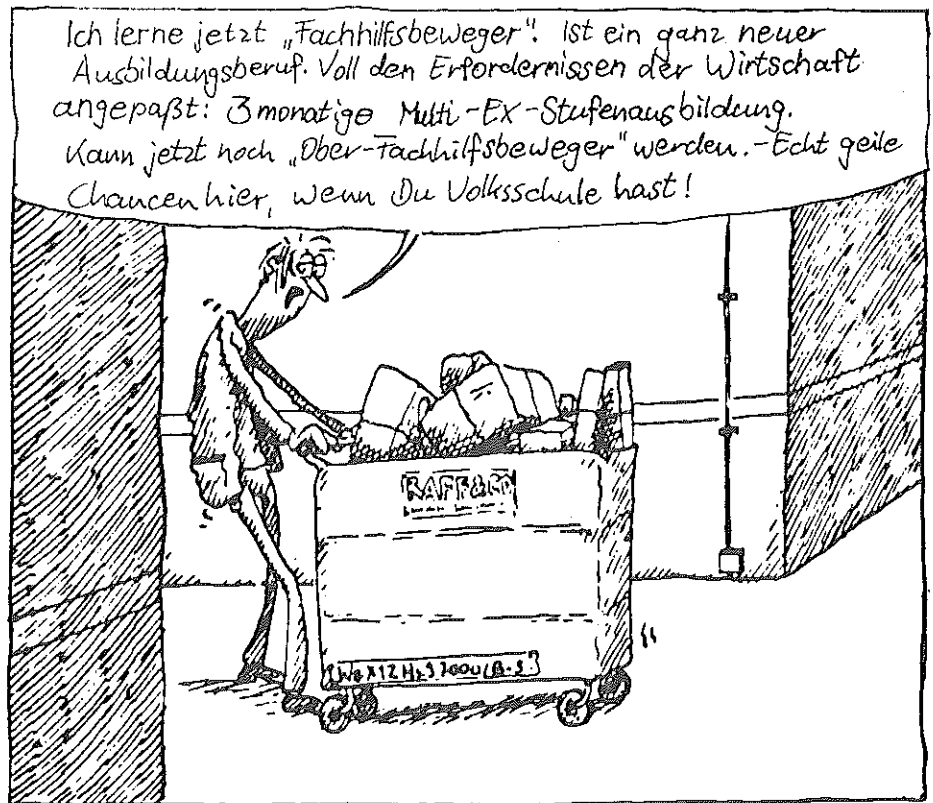 Ich lerne jetzt „Fachhilfsbeweger“. Ist ein ganz neuer
Ausbildungsberuf. Voll den Erfordernissen der Wirtschaft
angepaßt: 3monatige Multi-Ex-Stufenausbildung.
Kann jetzt noch „Ober-Fachhilfsbeweger“ werden.-Echt geile
Chancen hier, wenn Du Volksschule hast!
RAFF&CO